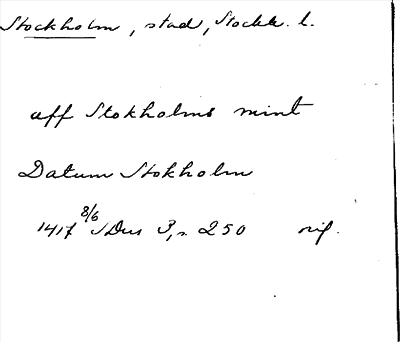 Stockholm, stad, Stockh. l.
aff Stokholms mint
Datum Stokholm
1417 8/6 SDns 3, s. 250 orig.